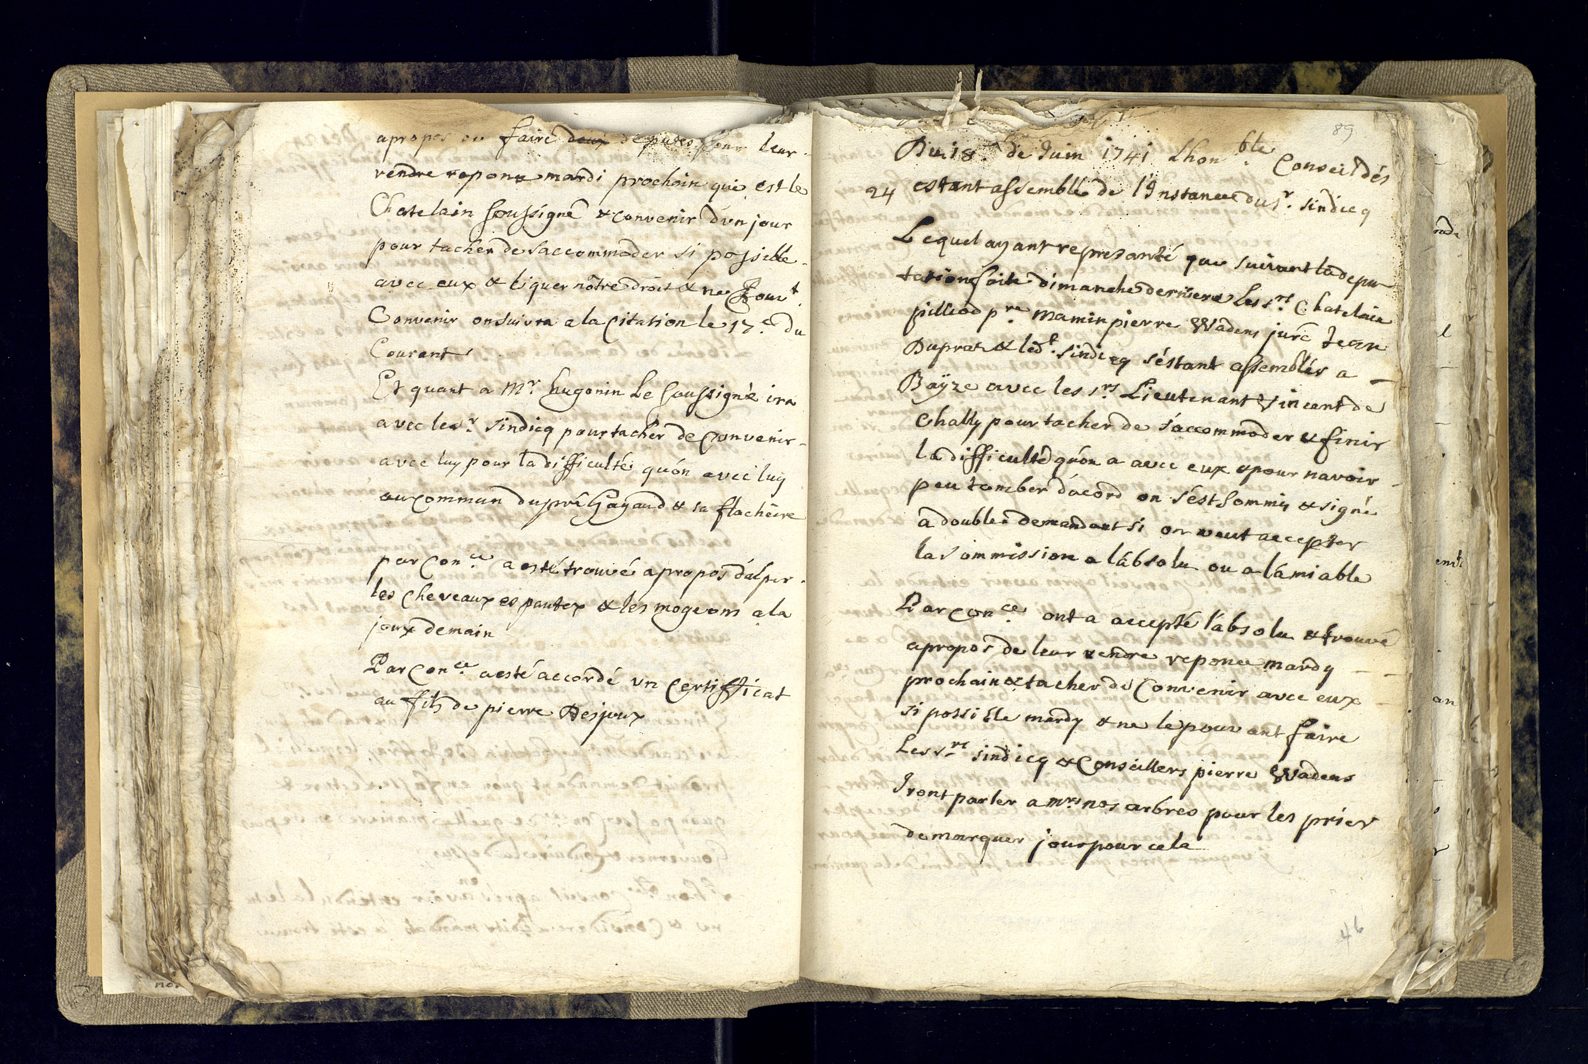 apropos de faire deux deputés pour leur
rendre reponce mardi prochain qui est le
Chatelain soussigné & convenir d'un jour
pour tacher de s'accommoder si possible
avec eux & liquer nôtre droit & ne Pouvt.
Convenir on suivra a la Citation le 17e. du
Courant
Et quant a Mr hugonin Le soussigné ira
avec le sr. Sindicq pour tacher de Convenir
avec luy pour la difficulté qu'on avec luy
au commun du pré Gayand & la flacheire
par Conce. a esté trouvé apropos d'alper
les Chevaux es pautex & les mogeons a la
joux demain
Par Conce a esté accordé un Certifficat
au fils de pierre Desjoux
89
Du 18e. de Juin 1741 Lhonble Conseil des
24 estant assemblé de l'Instance du Sr. Sindicq
Lequel ayant representé que suivant la depu-
tation faite dimanche derniere Les Srs Chatelain
pilliod pre Mamin pierre Wadens juré Jean
Duprat & ledt. Sindicq s'estant assemblés a
Bayze avec les srs Lieutenant Vincent de
Chally pour tacher de s'accommoder & finir
la difficulté qu'on a avec eux & pour navoir
peu tomber d'acord on s'est sommis & signé
a double demandant si on veut accepter
la Sommission a l'absolu ou a l'amiable
Par Conce. ont a accepté l'absolu & trouvé
apropos de leur rendre reponce mardy
prochain & tacher de Convenir avec eux
si possible mardy & ne le pouvant faire
Les Srs Sindicq & Conseillers pierre Wadens
Iront parler a mrs nos arbres pour les prier
de marquer jour pour cela
46